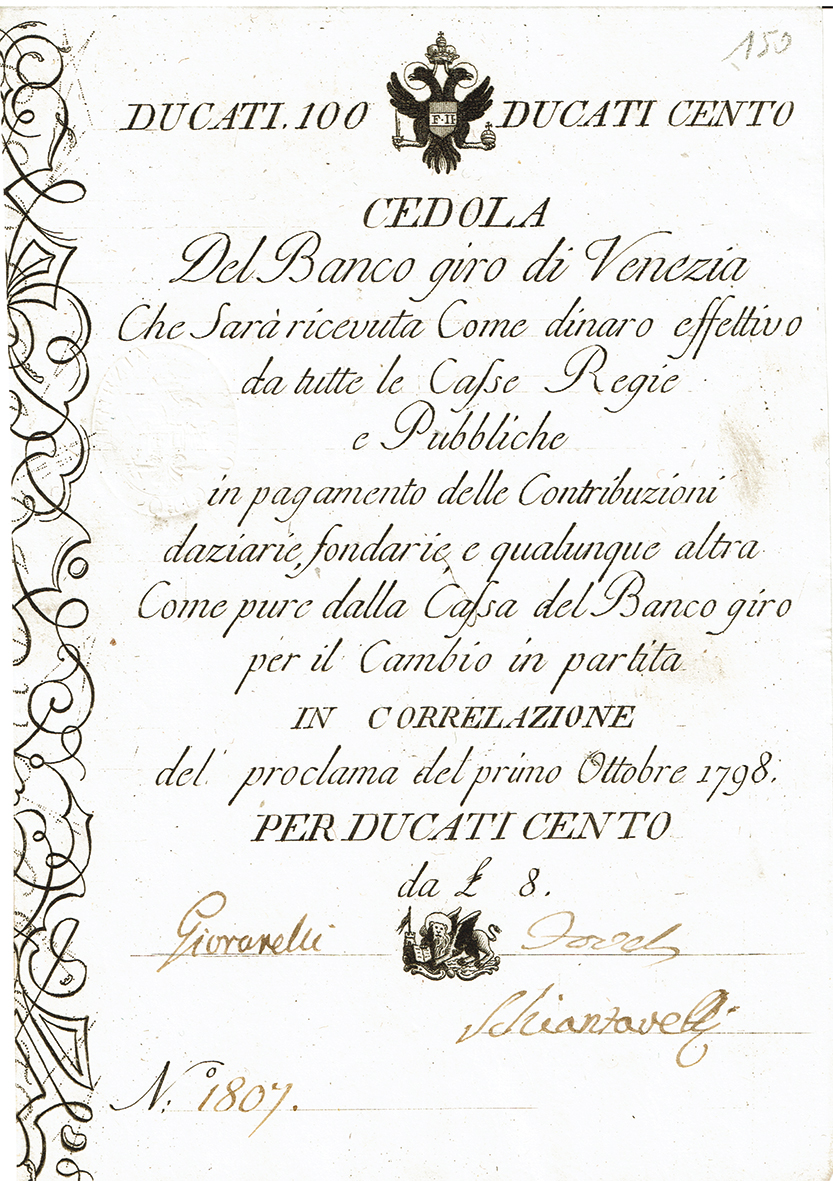 150
DUCATI. 100 F·II DUCATI CENTO
CEDOLA
Del Banco giro di Venezia
Che Sarà ricevuta Come dinaro effettivo
da tutte le Caſse Regie
e Pubbliche
in pagamento delle Contribuzioni
daziarie, fondarie, e qualunque altra
Come pure dalla Caſsa del Banco giro
per il Cambio in partita
IN CORRELAZIONE
del proclama del primo Ottobre 1798.
PER DUCATI CENTO
da £ 8.
Giovanelli
N.º 1807.